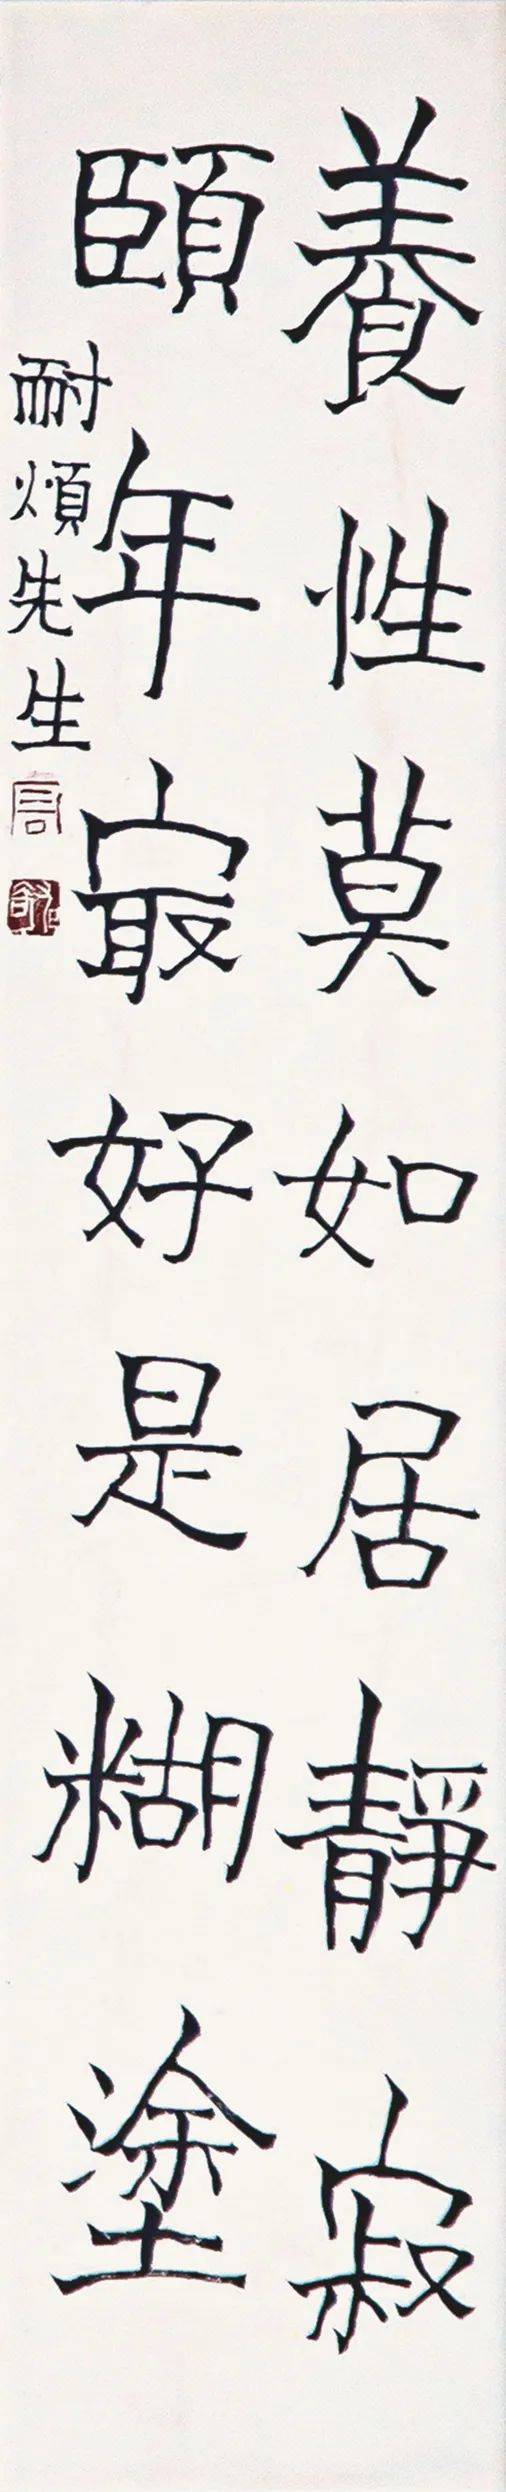 養性莫如居靜寂
頤年寂好是糊塗
耐煩先生